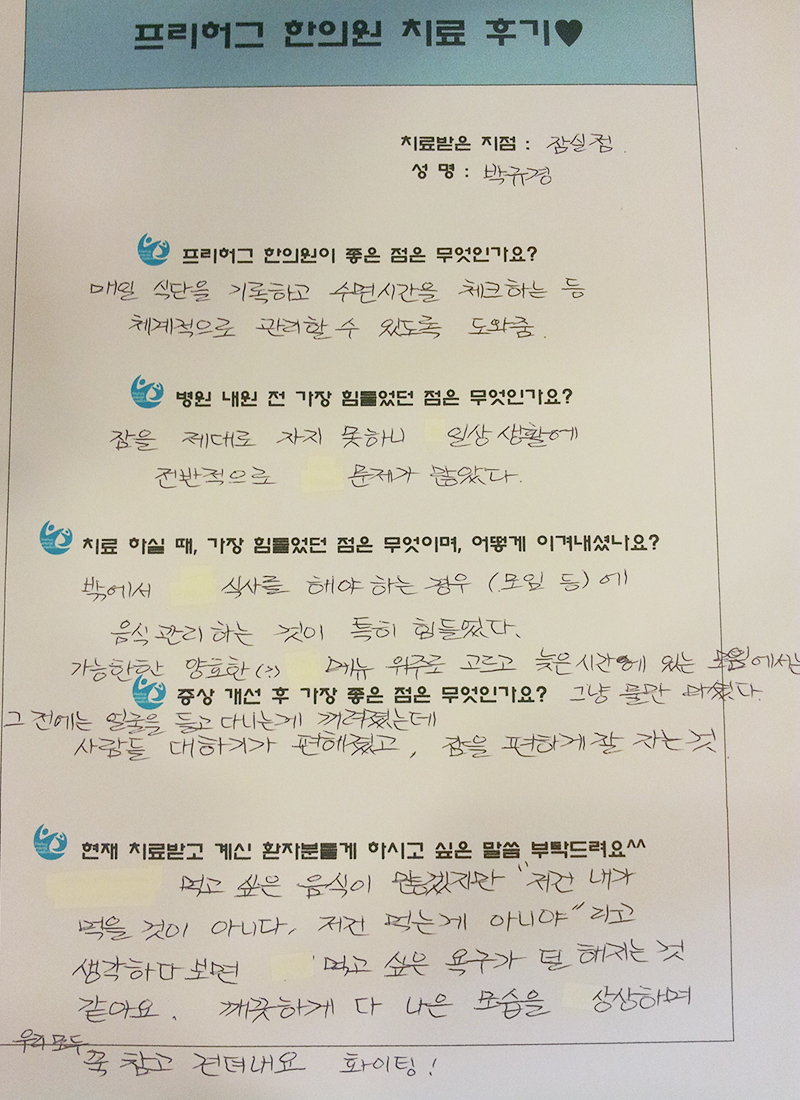 프리허그 한의원 치료 후기♥
치료받은 지점 : 잠실점.
성 명 : 박규경
프리허그 한의원이 좋은 점은 무엇인가요?
매일 식단을 기록하고 수면시간을 체크하는 등
체계적으로 관리할 수 있도록 도와줌.
병원 내원 전 가장 힘들었던 점은 무엇인가요?
잠을 제대로 자지 못하니 일상생활에
전반적으로 문제가 많았다.
치료 하실 때, 가장 힘들었던 점은 무엇이며, 어떻게 이겨내셨나요?
밖에서 식사를 해야 하는 경우 (모임 등)에
음식관리 하는 것이 특히 힘들었다.
가능한한 양호한(?) 메뉴 위주로 고르고 늦은시간에 있는 모임에서는
그냥 물만 마셨다.
증상 개선 후 가장 좋은 점은 무엇인가요?
그 전에는 얼굴을 들고 다니는게 꺼려졌는데
사람들 대하기가 편해졌고, 잠을 편하게 잘 자는 것
현재 치료받고 계신 환자분들게 하시고 싶은 말씀 부탁드려요^^
먹고 싶은 음식이 많겠지만 "저건 내가
먹을 것이 아니다, 저건 먹는게 아니야"라고
생각하다보면 먹고 싶은 욕구가 덜 해지는 것
같아요. 깨끗하게 다 나은 모습을 상상하며
우리 모두
꾹 참고 견뎌내요 화이팅!